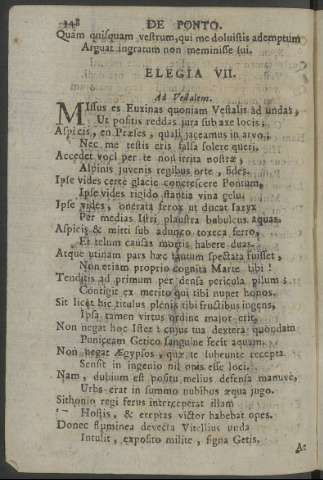 148 DE PONTO.
Quam quisquam vestrum, qui me doluistis ademptum
Arguat ingratum non meminisse sui.
ELEGIA VII.
Ad Vestalem.
MIssus es Euxinas quoniam Vestalis ad undas,
Ut positis reddas jura sub axe locis;
Aspicis, en Præses, quali jaceamus in arvo;
Nec me testis eris falsa solere queri.
Accedet voci per te non irrita nostræ,
Alpinis juvenis regibus orte, fides.
Ipse vides certe glacie concrescere Pontum,
Ipse vides rigido stantia vina gelu.
Ipse vides, onerata ferox ut ducat Iazyx
Per medias Istri plaustra bubulcus aquas.
Aspicis & mitti sub adunco toxica ferro,
Et telum causas mortis habere duas.
Atque utinam pars hæc tantum spectata fuisset,
Non etiam proprio cognita Marte tibi!
Tenditis ad primum per densa pericula pilum:
Contigit ex merito qui tibi nuper honos.
Sit licet hic titulus plenis tibi fructibus ingens,
Ipsa tamen virtus ordine major erit.
Non negat hoc Ister: cujus tua dextera quondam
Puniceam Getico sanguine fecit aquam.
Non negat Ægypsos, quæ te subeunte recepta
Sensit in ingenio nil opis esse loci.
Nam, dubium est positu melius defensa manuve,
Urbs erat in summo nubibus æqua jugo.
Sithonio regi ferus interceperat illam
Hostis, & ereptas victor habebat opes.
Donec fluminea devecta Vitellius unda
Intulit, exposito milite, signa Getis.
At